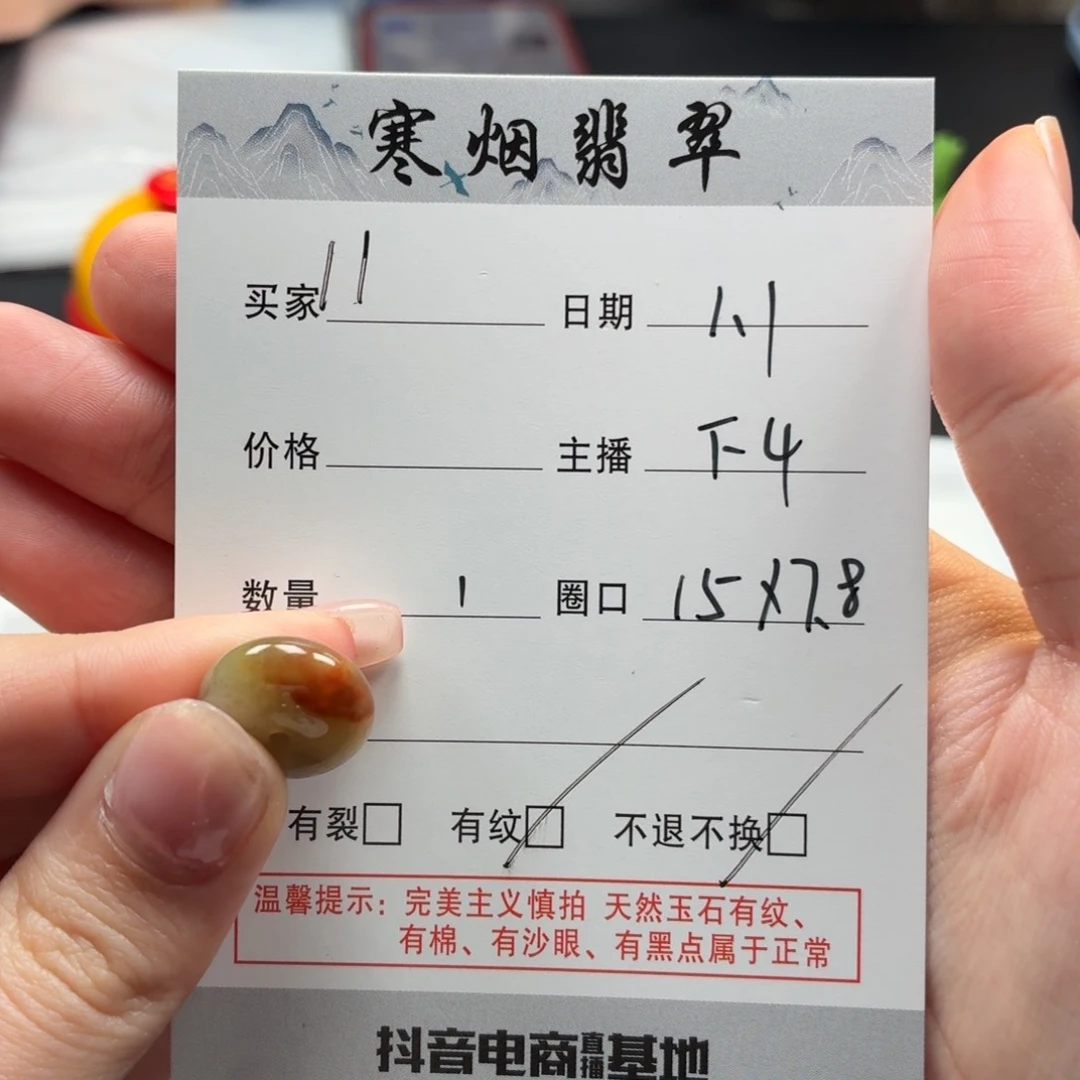 寒烟翡翠
买家 11 日期 1.1
价格 主播 下4
数量 1 圈口 15X7.8
有裂 有纹 不退不换
温馨提示：完美主义慎拍 天然玉石有纹、
有棉、有沙眼、有黑点属于正常
抖音电商直播基地